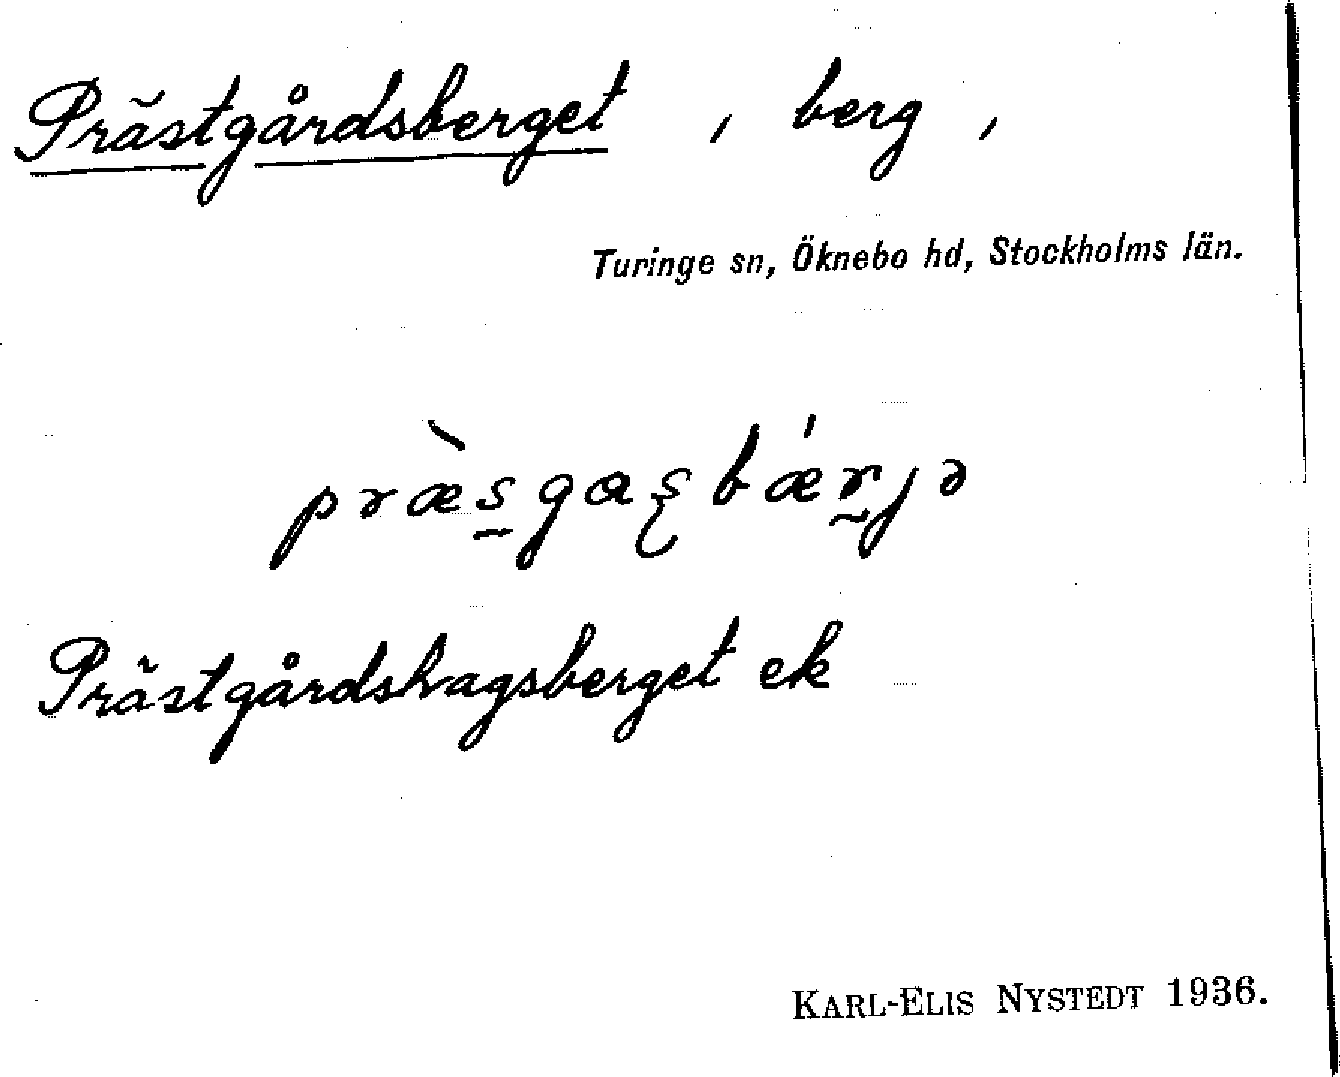 Prästgårdsberget, berg,
Turinge sn, Öknebo hd, Stockholms län.
præ̀s̠gɑʂbǽr̰jə
Prästgårdshagsberget ek
KARL-ELIS NYSTEDT 1936.